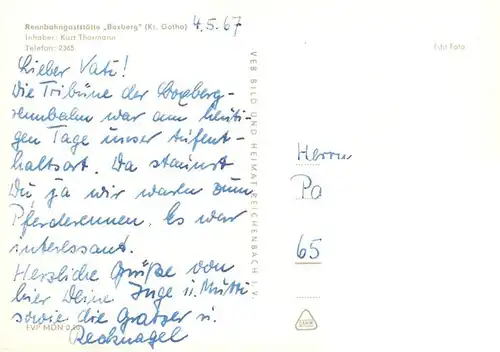 Rennbahngaststätte „Boxberg" (Kr. Gotha)
Inhaber: Kurt Thormann
Telefon: 2365
4.5.67
Echt Foto
Lieber Vati!
Die Tribüne der Boxberg-
rennbahn war am heuti-
gen Tage unser Aufent-
haltsort. Da staunst
Du, ja wir waren zum
Pferderennen. Es war
interessant.
Herzliche Grüße von
hier Deine Inge u. Mutti
sowie die Gratzer u.
Recknagel
EVP MDN 0,20
VEB BILD UND HEIMAT REICHENBACH I. V.
Herrn
Pa
65